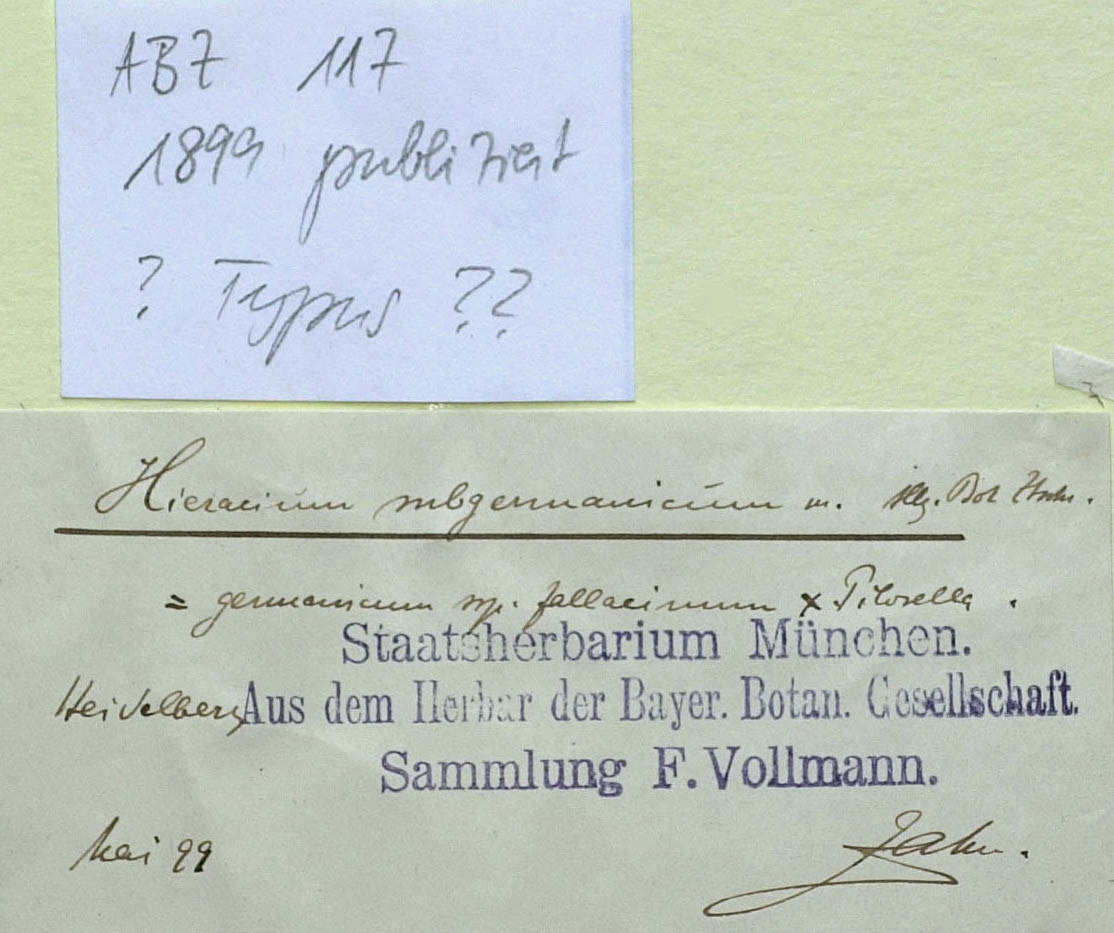 ABZ 117
1899 publiziert
? Typus ??
Hieracium subgermanicum m. Allg. Bot Ztschr.
= germanicum ssp. fallacinum × Pilosella .
Staatsherbarium München.
Heidelberg Aus dem Herbar der Bayer. Botan. Gesellschaft.
Sammlung F. Vollmann.
Mai 99 Zahn.